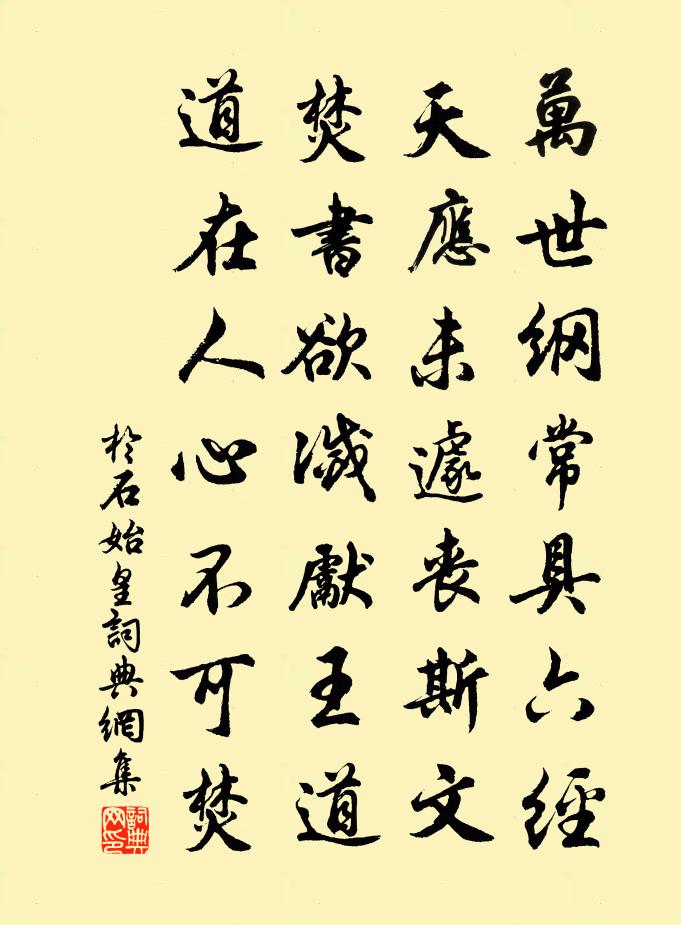 萬世綱常具六經
天應未遽喪斯文
焚書欲滅獻王道
道在人心不可焚
於石始皇詞典網集
詞典网印